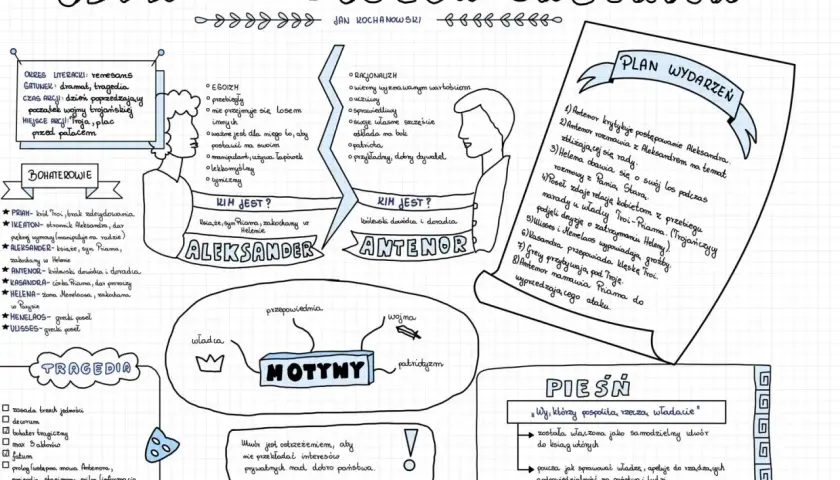 JAN KOCHANOWSKI
OKRES LITERACKI: renesans
GATUNEK: dramat, tragedia
CZAS AKCJI: dzień poprzedzający
początek wojny trojańskiej
MIEJSCE AKCJI: Troja, plac
przed pałacem
BOHATEROWIE
PRIAM- król Troi, brak zdecydowania
IKEATON- stronnik Aleksandra, dar
pięknej wymowy (manipuluje na radzie)
ALEKSANDER- książę, syn Priama,
zakochany w Helenie
ANTENOR- królewski doradca
KASANDRA- córka Priama, dar proroczy
HELENA- żona Menelaosa, zakochana
w Parysie
MENELAOS- grecki poseł
ULISSES- grecki poseł
TRAGEDIA
zasada trzech jedności
decorum
bohater tragiczny
max 3 aktorów
fatum
prolog (wstępna mowa Antenora,
EGOIZM
przebiegły
nie przejmuje się losem
innych
ważne jest dla niego to, aby
postawić na swoim
manipulant, używa łapówek
lekkomyślny
cyniczny
KIM JEST?
książę, syn Priama, zakochany w
Helenie
ALEKSANDER
RACJONALIZM
wierny wyznawanym wartościom
uczciwy
sprawiedliwy
swoje własne szczęście
odkłada na bok
patriota
przykładny, dobry obywatel
KIM JEST?
królewski doradca
ANTENOR
przepowiednia
władca
wojna
patriotyzm
MOTYWY
Utwór jest ostrzeżeniem, aby
nie przekładać interesów
prywatnych nad dobro państwa.
PLAN WYDARZEŃ
1) Antenor krytykuje postępowanie Aleksandra.
2) Antenor rozmawia z Aleksandrem na temat
zbliżającej się rady.
3) Helena obawia się o swój los podczas
rozmowy z Panią Starą.
4) Poseł zdaje relację kobietom z przebiegu
narady u władcy Troi-Priama. (Trojańczycy
podjęli decyzję o zatrzymaniu Heleny)
5) Ulisses i Menelaos wypowiadają groźby.
6) Kasandra przepowiada klęskę Troi.
7) Grecy przybywają pod Troję.
8) Antenor namawia Priama do
wyprzedzającego ataku.
PIEŚŃ
"Wy, którzy pospolitą rzeczą władacie"
została włączona jako samodzielny utwór
do ksiąg wtórych
poucza jak sprawować władzę, apeluje do rządzących